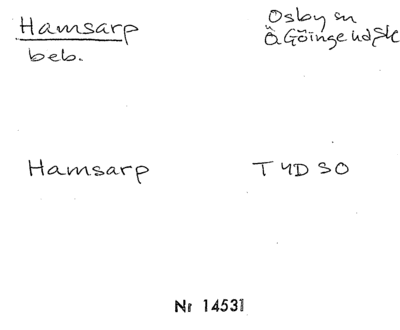 Hamsarp
beb.
Osby sn
Ö Göinge hd, Sk
Hamsarp
T 4D SO
Nr 14531